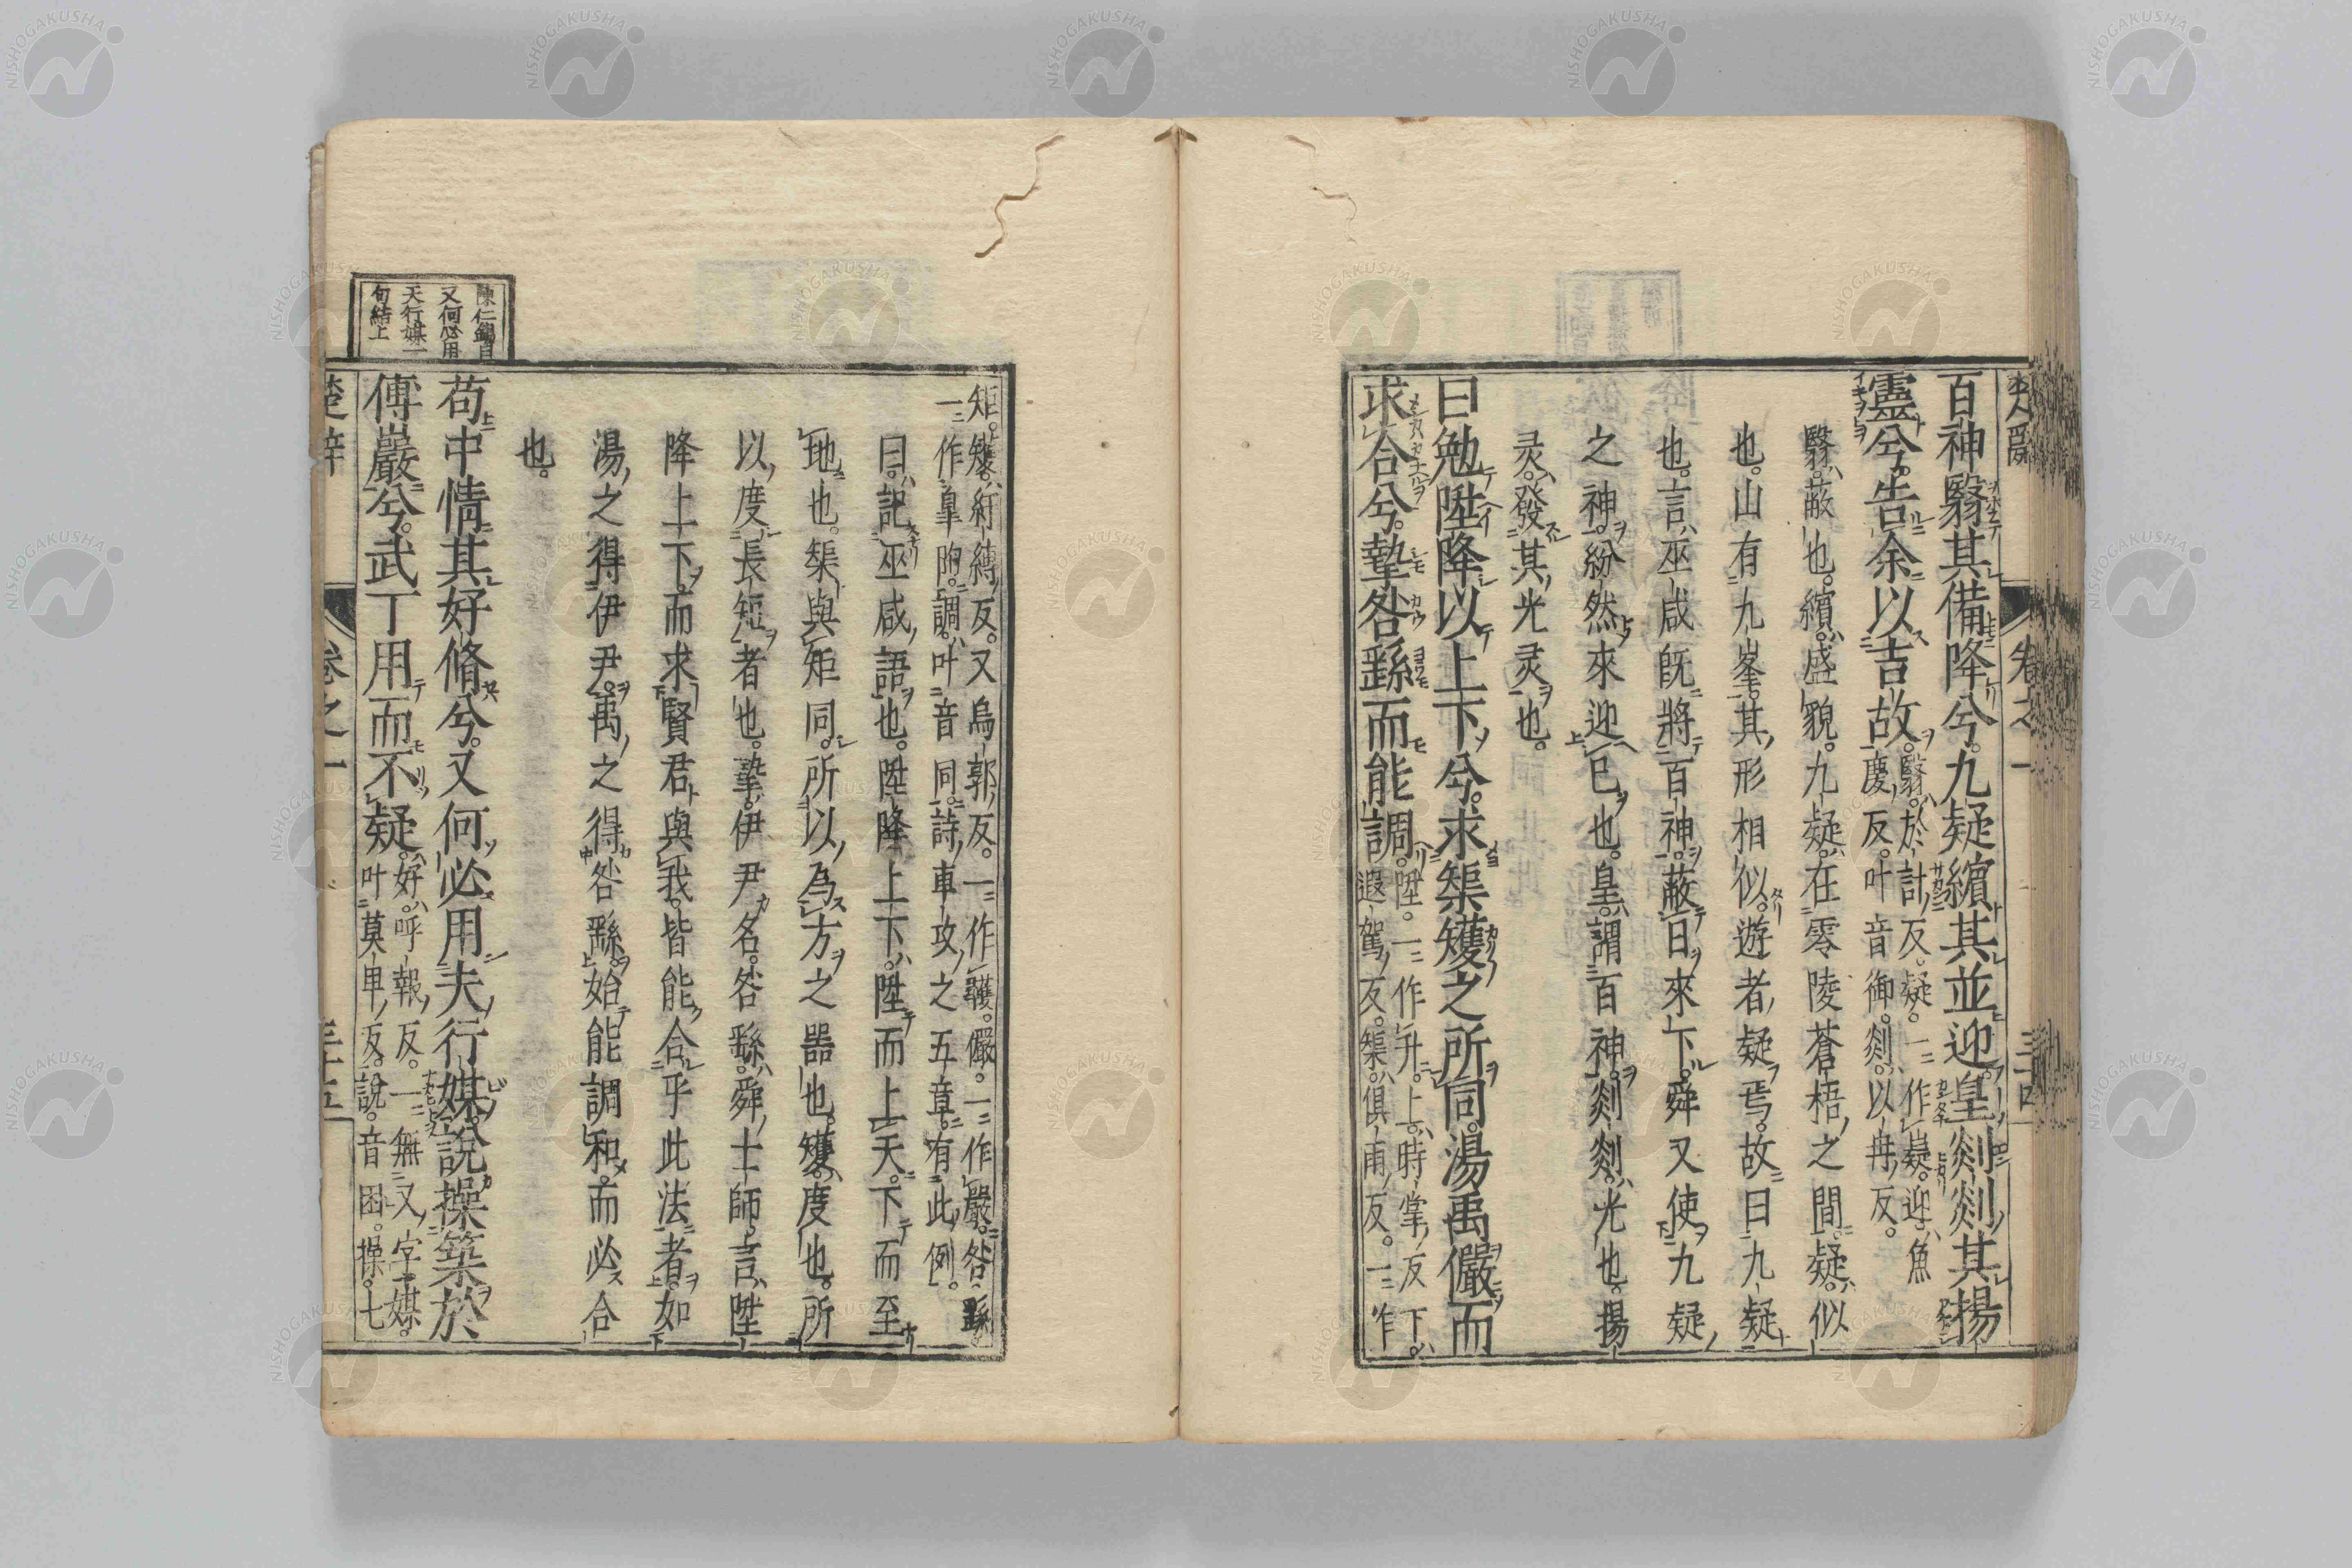 百神翳其備降兮。九疑繽其並迎。皇剡剡其揚
靈兮。告余以吉故。
翳。於計反。疑。一作嶷。迎。魚
慶反。叶音御。剡。以冉反。
翳。蔽也。繽。盛貌。九疑。在零陵蒼梧之間。疑。似
也。山有九峯。其形相似。遊者疑焉。故曰九疑
也。言巫咸旣將百神。蔽日來下。舜又使九疑
之神。紛然來迎已也。皇。謂百神。剡剡。光也。揚
灵。發其光灵也。
曰勉陞降以上下兮。求榘矱之所同。湯禹儼而
求合兮。摯咎繇而能調。
陞。一作升。上。時掌反下。
遐駕反。榘。俱甫反。一作
矩。矱。紆縛反。又烏郭反。一作彠。儼。一作嚴。咎繇。
一作皐陶。調。叶音同。詩車攻之五章。有此例。
曰。記巫咸語也。陞降上下。陞而上天。下而至
地也。榘與矩同。所以為方之器也。矱。度也。所
以度長短者也。摯。伊尹名。咎繇。舜士師。言陞
降上下。而求賢君與我。皆能合乎此法者。如
湯之得伊尹。禹之得咎繇。始能調和。而必合
也。
苟中情其好脩兮。又何必用夫行媒。說操築於
傅巖兮。武丁用而不疑。
好。呼報反。一無又字。媒。
叶莫卑反。說。音困。操。七
陳仁錫曰
又何必用
夫行媒一
句結上
楚辭
卷之一
三十五